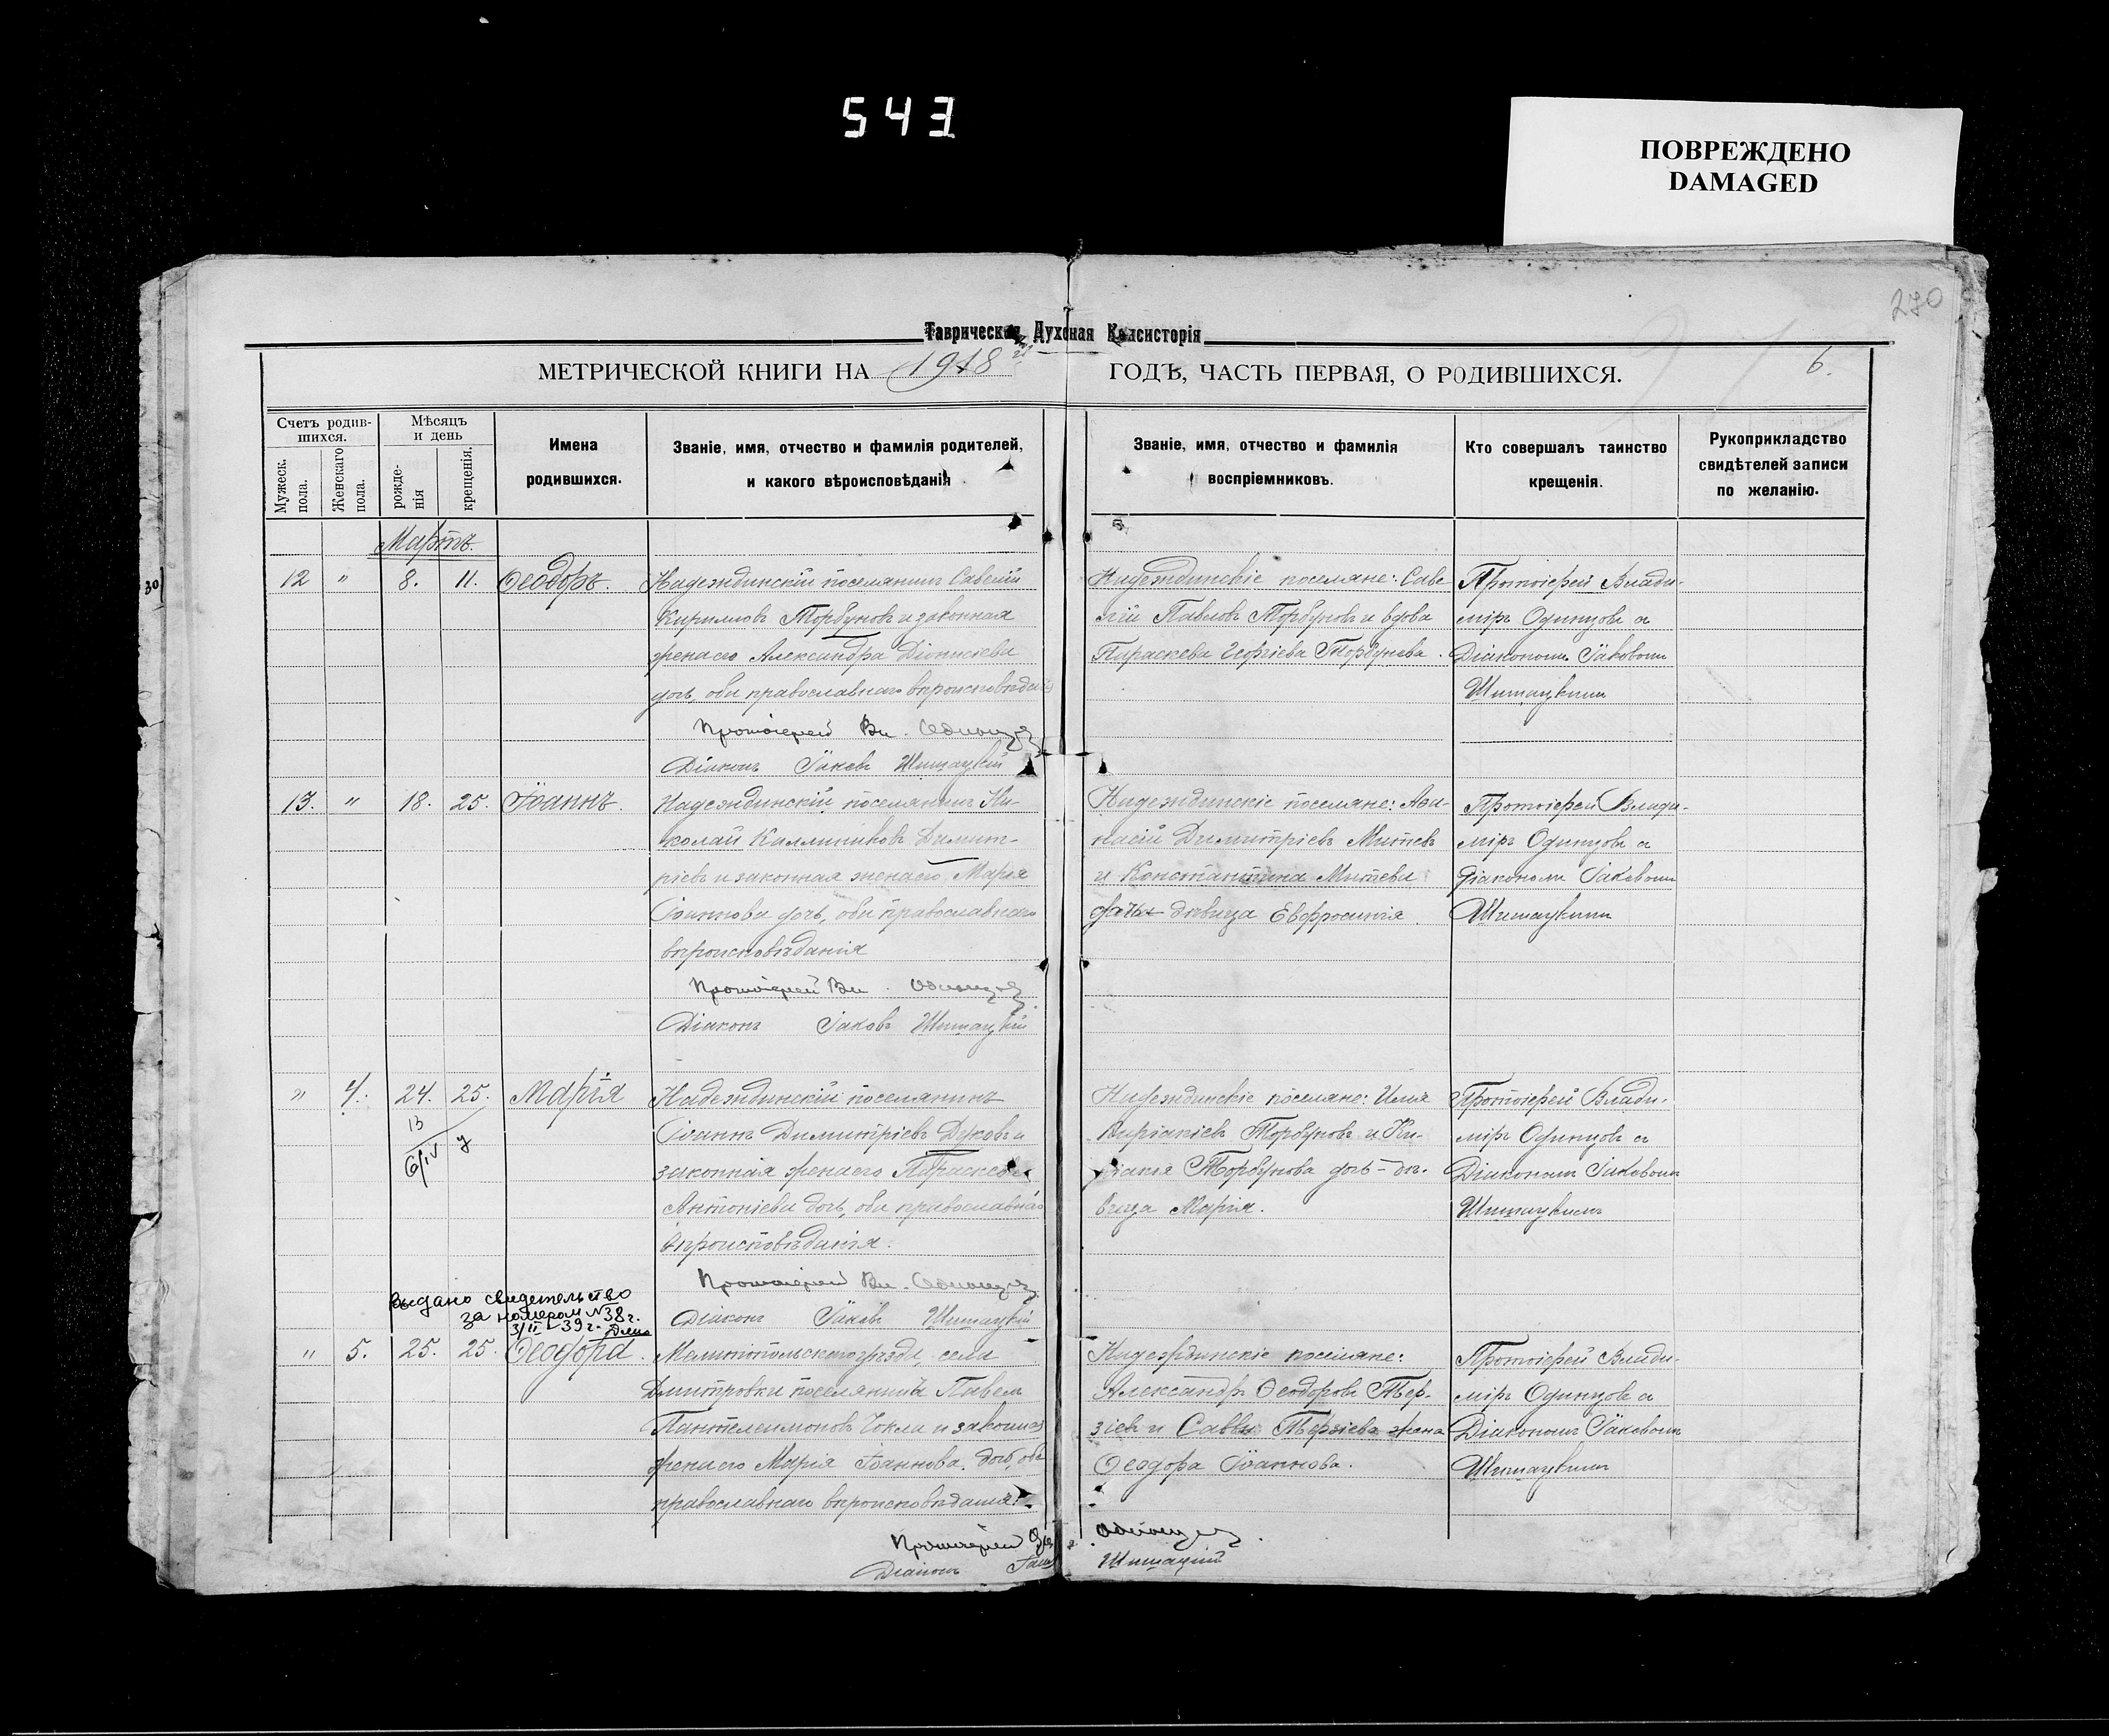 543
ПОВРЕЖДЕНО
DAMAGED
270
Таврическая Духовная Консисторія
МЕТРИЧЕСКОЙ КНИГИ НА 1918 ГОДЪ, ЧАСТЬ ПЕРВАЯ, О РОДИВШИХСЯ.
6.
Счетъ родив-
шихся.
Мужеск.
пола.
Женскаго
пола.
Мѣсяцъ
и день
рожде-
нія
крещенія.
Имена
родившихся.
Званіе, имя, отчество и фамилія родителей,
и какого вѣроисповѣданія
Званіе, имя, отчество и фамилія
воспріемниковъ.
Кто совершалъ таинство
крещенія.
Рукоприкладство
свидѣтелей записи
по желанію.
Мартъ.
30
12 " 8. 11. Ѳеодоръ.
Надеждинскій поселянинъ Савелій
Кирилловъ Торбуновъ и законная
жена его Александра Діонисіева
дочь, оба православнаго вѣроисповѣданія
Протоіерей Вл. Одинцовъ
Діаконъ Іаковъ Шишацкій
Надеждинскіе поселяне: Саве-
лій Павловъ Торбуновъ и вдова
Параскева Георгіева Торбунова.
Протоіерей Влади-
міръ Одинцовъ съ
Діакономъ Іаковомъ
Шишацкимъ
13. " 18. 25. Іоаннъ.
Надеждинскій поселянинъ Ни-
колай Каллиниковъ Димит-
ріевъ и законная жена его Марія
Іоаннова дочь, оба православнаго
вѣроисповѣданія
Протоіерей Вл. Одинцовъ
Діаконъ Іаковъ Шишацкій
Надеждинскіе поселяне: Аѳа-
насій Димитріевъ Митевъ
и Константина Митева
дочь дѣвица Евфросинія.
Протоіерей Влади-
міръ Одинцовъ съ
Діакономъ Іаковомъ
Шишацкимъ
" 4. 24. 25. Марія
13
6/IV
Надеждинскій поселянинъ
Іоаннъ Димитріевъ Дуковъ и
законная жена его Параскева
Антоніева дочь, оба православнаго
вѣроисповѣданія.
Протоіерей Вл. Одинцовъ
Діаконъ Іаковъ Шишацкій
Надеждинскіе поселяне: Илія
Киріакіевъ Торбуновъ и Ки-
Торбунова дочь - дѣ-
вица Марія.
Протоіерей Влади-
міръ Одинцовъ съ
Діакономъ Іаковомъ
Шишацкимъ
Выдано свидетельство
за номером №38г.
3/II - 39г.
" 5. 25. 25. Ѳеодора.
Мелитопольскаго уѣзда, села
Дмитровки поселянинъ Павелъ
Пантелеимоновъ Чокла и законная
жена его Марія Іоаннова дочь, оба
православнаго вѣроисповѣданія.
Надеждинскіе поселяне:
Александръ Ѳеодоровъ Тер-
зіевъ и Саввы Терзіева жена
Ѳеодора Іоаннова.
Протоіерей Влади-
міръ Одинцовъ съ
Діакономъ Іаковомъ
Шишацкимъ
Протоіерей Одинцовъ
Діаконъ Іаковъ Шишацкій